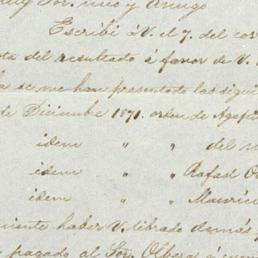 Sor. mio y Amigo
Escribí á V. el 7. del cor
ta del resultado á favor de V.
se me han presentado las sigui
de Diciembre 1871. orden de Agapi
idem " " del m
idem " " Rafael O
idem " " Mauric
niente haber V. librado demás y
pagado al Sor.